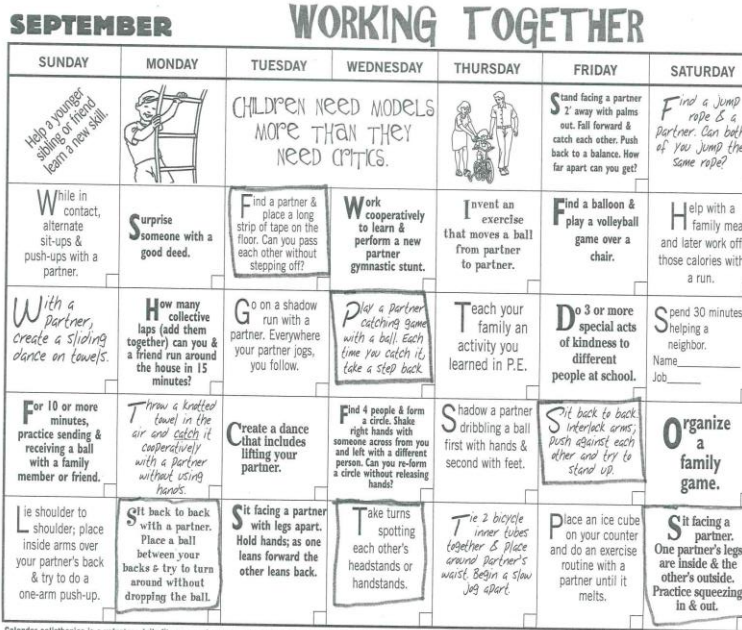 SEPTEMBER
WORKING TOGETHER
SUNDAY
MONDAY
TUESDAY
WEDNESDAY
THURSDAY
FRIDAY
SATURDAY
Help a younger
sibling or friend
learn a new skill.
CHILDREN NEED MODELS
MORE THAN THEY
NEED CRITICS.
Stand facing a partner
2' away with palms
out. Fall forward &
catch each other. Push
back to a balance. How
far apart can you get?
Find a jump
rope & a
partner. Can both
of you jump the
same rope?
While in
contact,
alternate
sit-ups &
push-ups with a
partner.
Surprise
someone with a
good deed.
Find a partner &
place a long
strip of tape on the
floor. Can you pass
each other without
stepping off?
Work
cooperatively
to learn &
perform a new
partner
gymnastic stunt.
Invent an
exercise
that moves a ball
from partner
to partner.
Find a balloon &
play a volleyball
game over a
chair.
Help with a
family mea
and later work off
those calories with
a run.
With a
partner,
create a sliding
dance on towels.
How many
collective
laps (add them
together) can you &
a friend run around
the house in 15
minutes?
Go on a shadow
run with a
partner. Everywhere
your partner jogs,
you follow.
Play a partner
catching game
with a ball. Each
time you catch it,
take a step back
Teach your
family an
activity you
learned in P.E.
Do 3 or more
special acts
of kindness to
different
people at school.
Spend 30 minutes
helping a
neighbor.
Name
Job
For 10 or more
minutes,
practice sending &
receiving a ball
with a family
member or friend.
Throw a knotted
towel in the
air and catch it
cooperatively
with a partner
without using
hands.
Create a dance
that includes
lifting your
partner.
Find 4 people & form
a circle. Shake
right hands with
someone across from you
and left with a different
person. Can you re-form
a circle without releasing
hands?
Shadow a partner
dribbling a ball
first with hands &
second with feet.
Sit back to back.
Interlock arms;
push against each
other and try to
stand up.
Organize
a
family
game.
Lie shoulder to
shoulder; place
inside arms over
your partner's back
& try to do a
one-arm push-up.
Sit back to back
with a partner.
Place a ball
between your
backs & try to turn
around without
dropping the ball.
Sit facing a partner
with legs apart.
Hold hands; as one
leans forward the
other leans back.
Take turns
spotting
each other's
headstands or
handstands.
Tie 2 bicycle
inner tubes
together & place
around partner's
waist. Begin a slow
jog apart.
Place an ice cube
on your counter
and do an exercise
routine with a
partner until it
melts.
Sit facing a
partner.
One partner's legs
are inside & the
other's outside.
Practice squeezing
in & out.